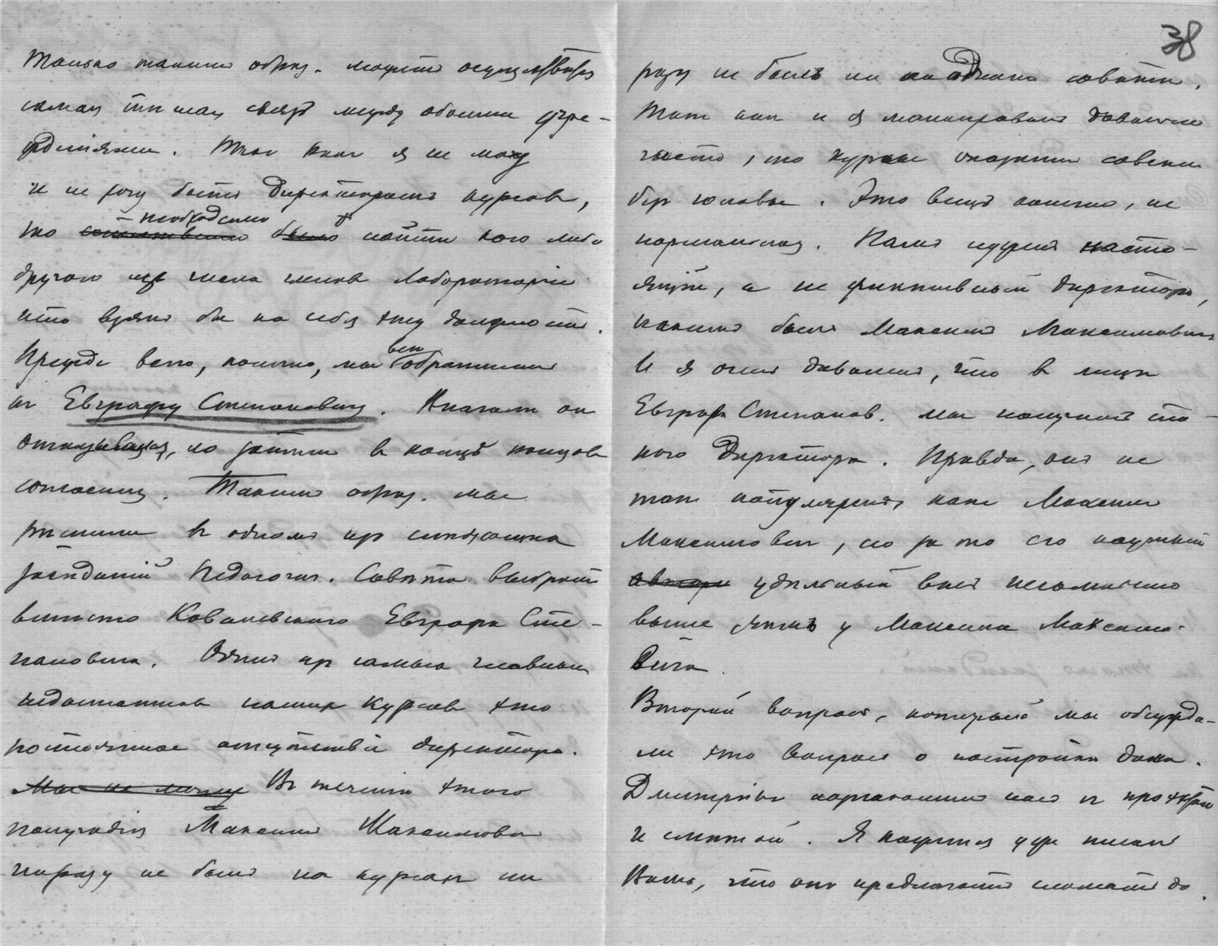 Только таким образ. можетъ осуществиться
самая тѣсная связь между обоими учре-
жденіями. Такъ какъ я не могу
и не хочу быть директоромъ курсовъ,
то необходимо было найти кого либо
другого изъ числа членовъ Лабораторіи
кто взялъ бы на себя эту должность.
Прежде всего, конечно, мы всѣ обратились
къ Евграфу Степановичу. Вначалѣ он
отказывался, но затѣмъ в концѣ концовъ
согласился. Таким образ. мы
рѣшили в одномъ из
засѣданій Педагогич. Совѣта выбрать
вмѣсто Ковалевскаго Евграфа Сте-
пановича. Один из самых главных
недостатков наших курсов это
постоянное отсутствіе директора.
Мы не можем В теченіи этого
полугодія Максим Максимович
ни разу не был на курсах ни
38
разу не былъ ни на одном совѣтѣ.
Так как и я манкировал довольно
часто, то курсы оказались совсѣм
без головы. Это вещь конечно, не
нормальная. Нам нужен насто-
ящій, а не фиктивный директор,
каким был Максим Максимович
И я очень доволен, что в лицѣ
Евграфа Степанов. мы получим та-
кого директора. Правда, он не
так популярен, как Максим
Максимович, но за то его научный
удѣльный вѣс несомнѣнно
выше чѣмъ у Максима Максимо-
вича.
Второй вопрос, который мы обсужда-
ли это вопрос о постройкѣ дома.
Дмитріев нас и
и смѣтой. Я кажется уже писал
Вамъ, что он предлагает сломать до